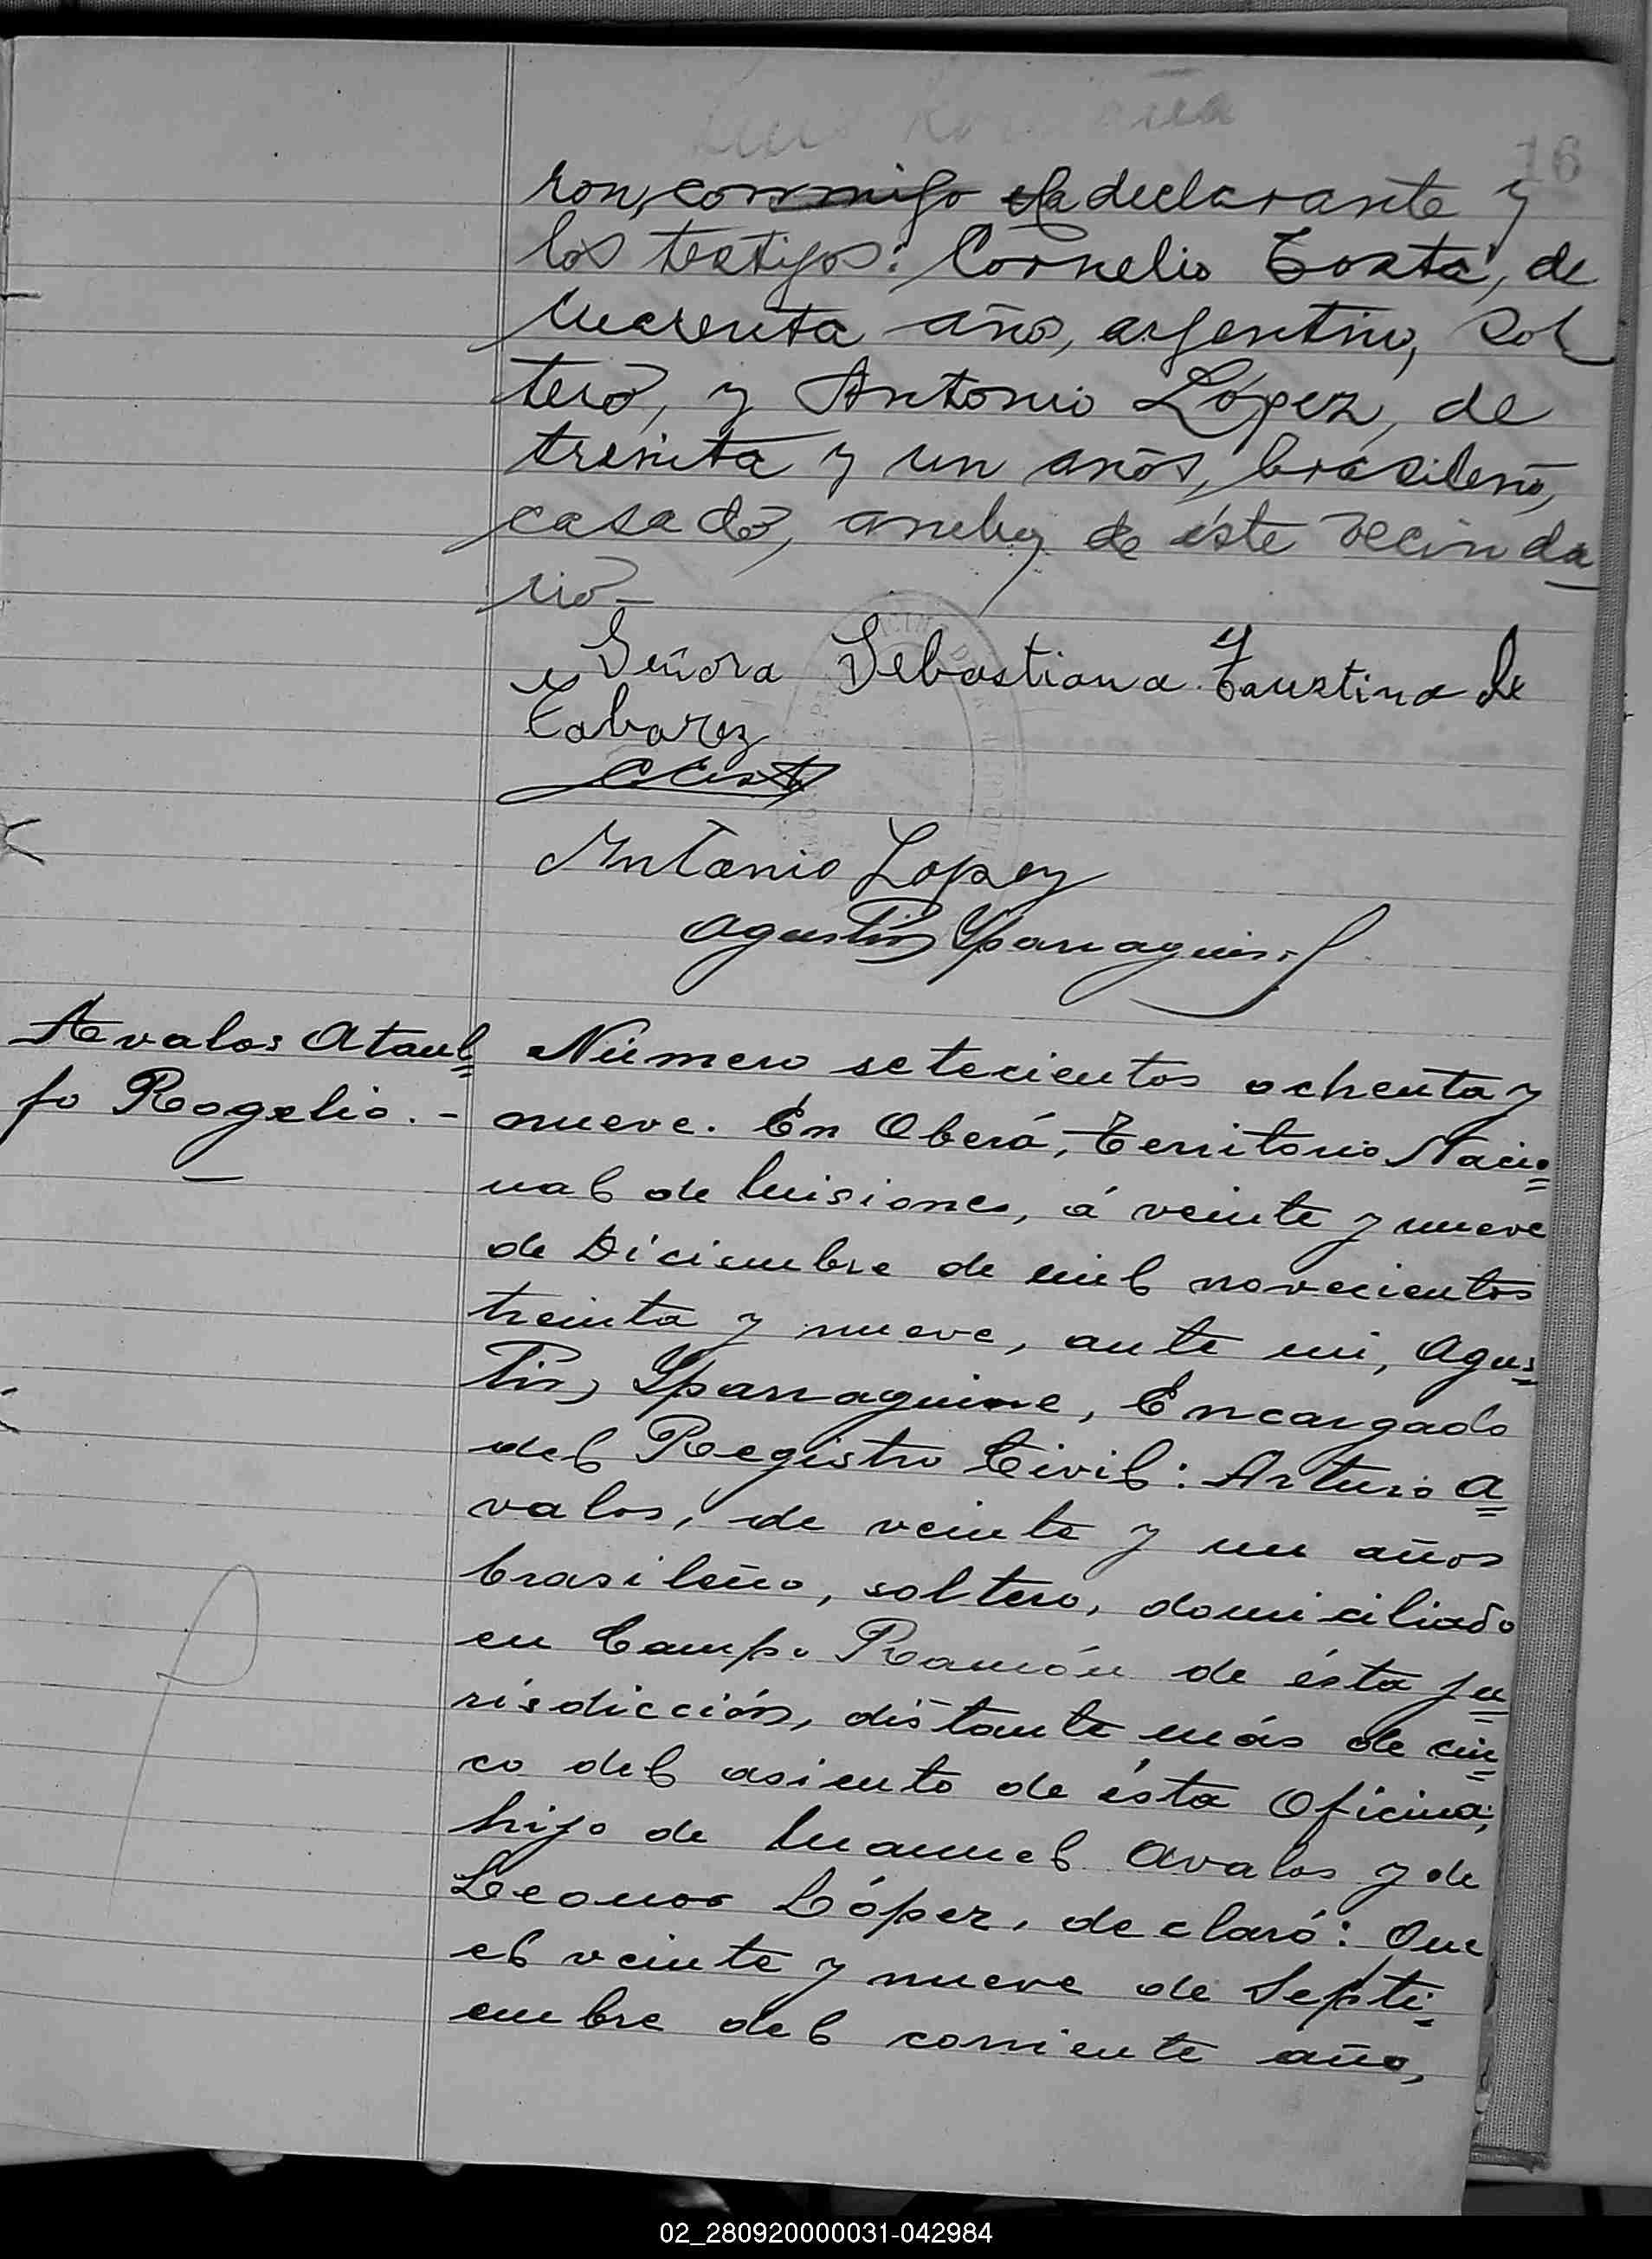 16
ron, conmigo la declarante y
los testigos: Cornelio Costa, de
cuarenta año, argentino, sol
tero, y Antonio López, de
treinta y un años, brasileño,
casado, ambos de éste vecinda
rio-
Señora Sebastiana Faustina de
Tabarez
Antonio Lopez
Agustin Yparraguirre
Avalos Ataul=
fo Rogelio.-
Número setecientos ochenta y
nueve. En Oberá, Territorio Nacio=
nal de Misiones, á veinte y nueve
de Diciembre de mil novecientos
treinta y nueve, ante mi, Agus=
tin Yparraguirre, Encargado
del Registro Civil: Arturo A=
valos, de veinte y un años
brasileño, soltero, domiciliado
en Campo Ramón de ésta ju=
risdicción, distante más de cin=
co del asiento de ésta Oficina;
hijo de Manuel Avalos y de
Leonor López, declaró: Que
el veinte y nueve de Septi=
embre del corriente año,
02_280920000031-042984